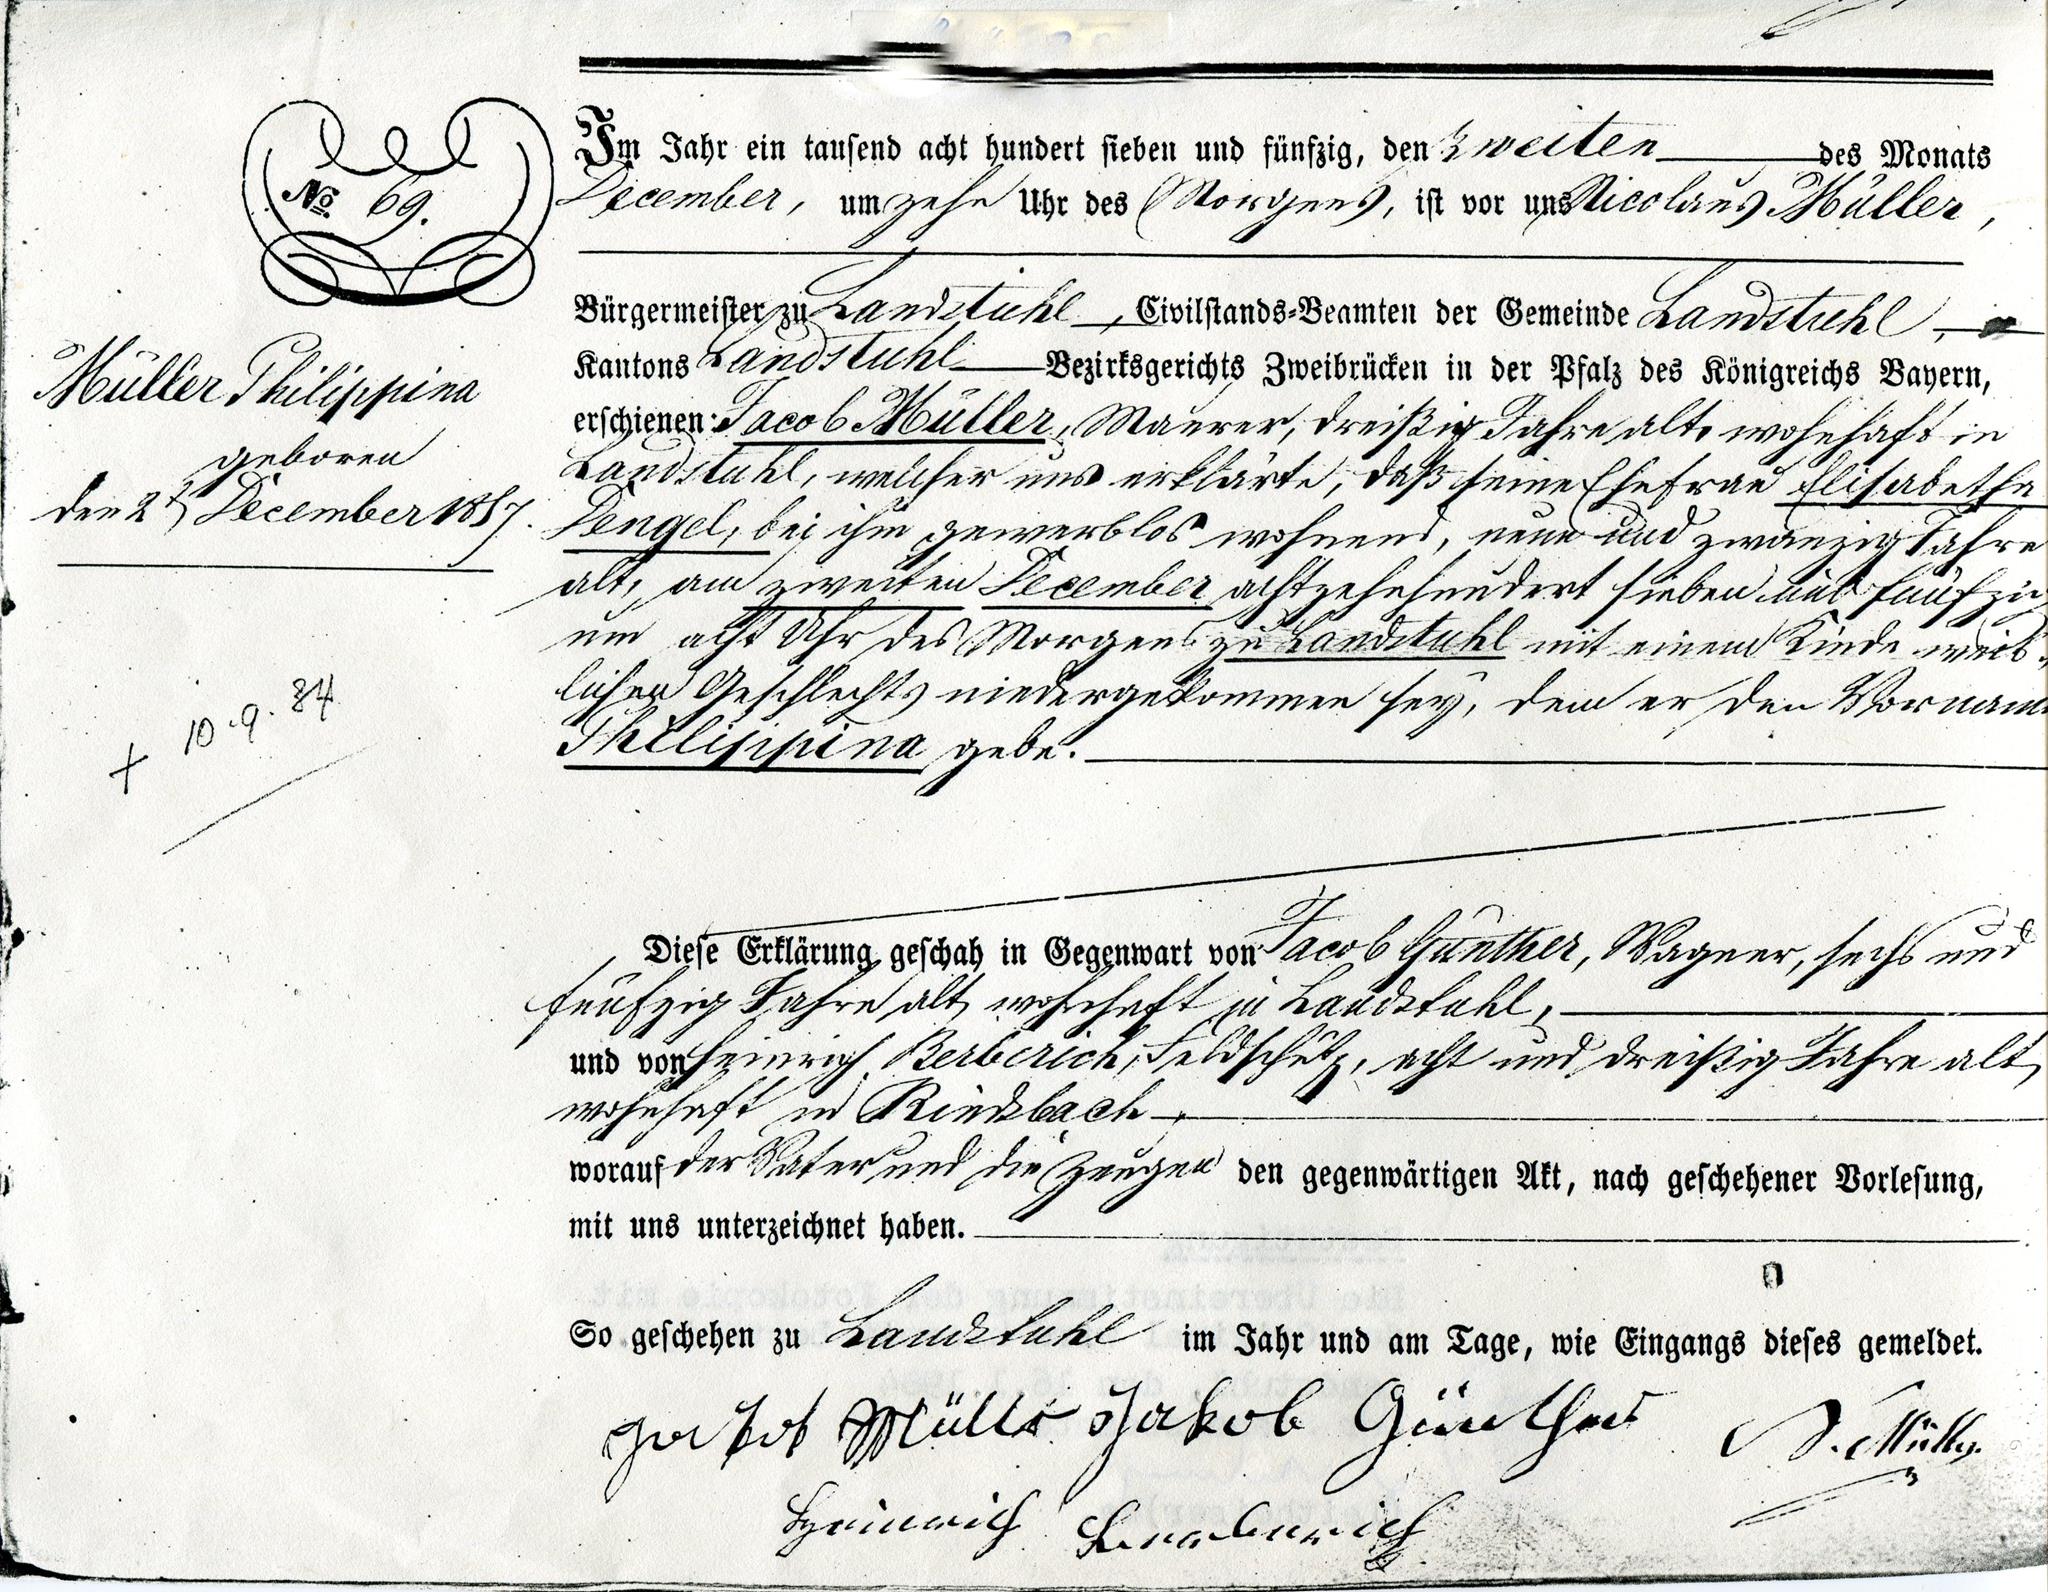 Im Jahr ein tausend acht hundert sieben und fünfzig, den zweiten des Monats
No. 69.
December, um zehn Uhr des Morgens, ist vor uns Nicolaus Müller,
Bürgermeister zu Landstuhl, Civilstands-Beamten der Gemeinde Landstuhl,
Kantons Landstuhl Bezirksgerichts Zweibrücken in der Pfalz des Königreichs Bayern,
Müller Philippina
geboren
den 2t December 1857.
erschienen: Jacob Müller, Maurer, dreißig Jahre alt, wohnhaft in
Landstuhl, welcher uns erklärte, daß seine Ehefrau Elisabetha
Dengel, bei ihm gewerblos wohnend, neun und zwanzig Jahre
alt, am zweiten December achtzehnhundert sieben und fünfzig
um acht Uhr des Morgens zu Landstuhl mit einem Kinde weib-
lichen Geschlechts niedergekommen sey, dem er den Vornamen
Philippina gebe.
+ 10.9.84
Diese Erklärung geschah in Gegenwart von Jacob Günther, Wagner, sechs und
fünfzig Jahre alt, wohnhaft in Landstuhl,
und von Heinrich Berberich, Feldschütz, acht und dreißig Jahre alt,
wohnhaft in Kindsbach,
worauf der Vater und die Zeugen den gegenwärtigen Akt, nach geschehener Vorlesung,
mit uns unterzeichnet haben.
So geschehen zu Landstuhl im Jahr und am Tage, wie Eingangs dieses gemeldet.
Jakob Müller Jakob Günther N. Müller.
Heinrich Berberich